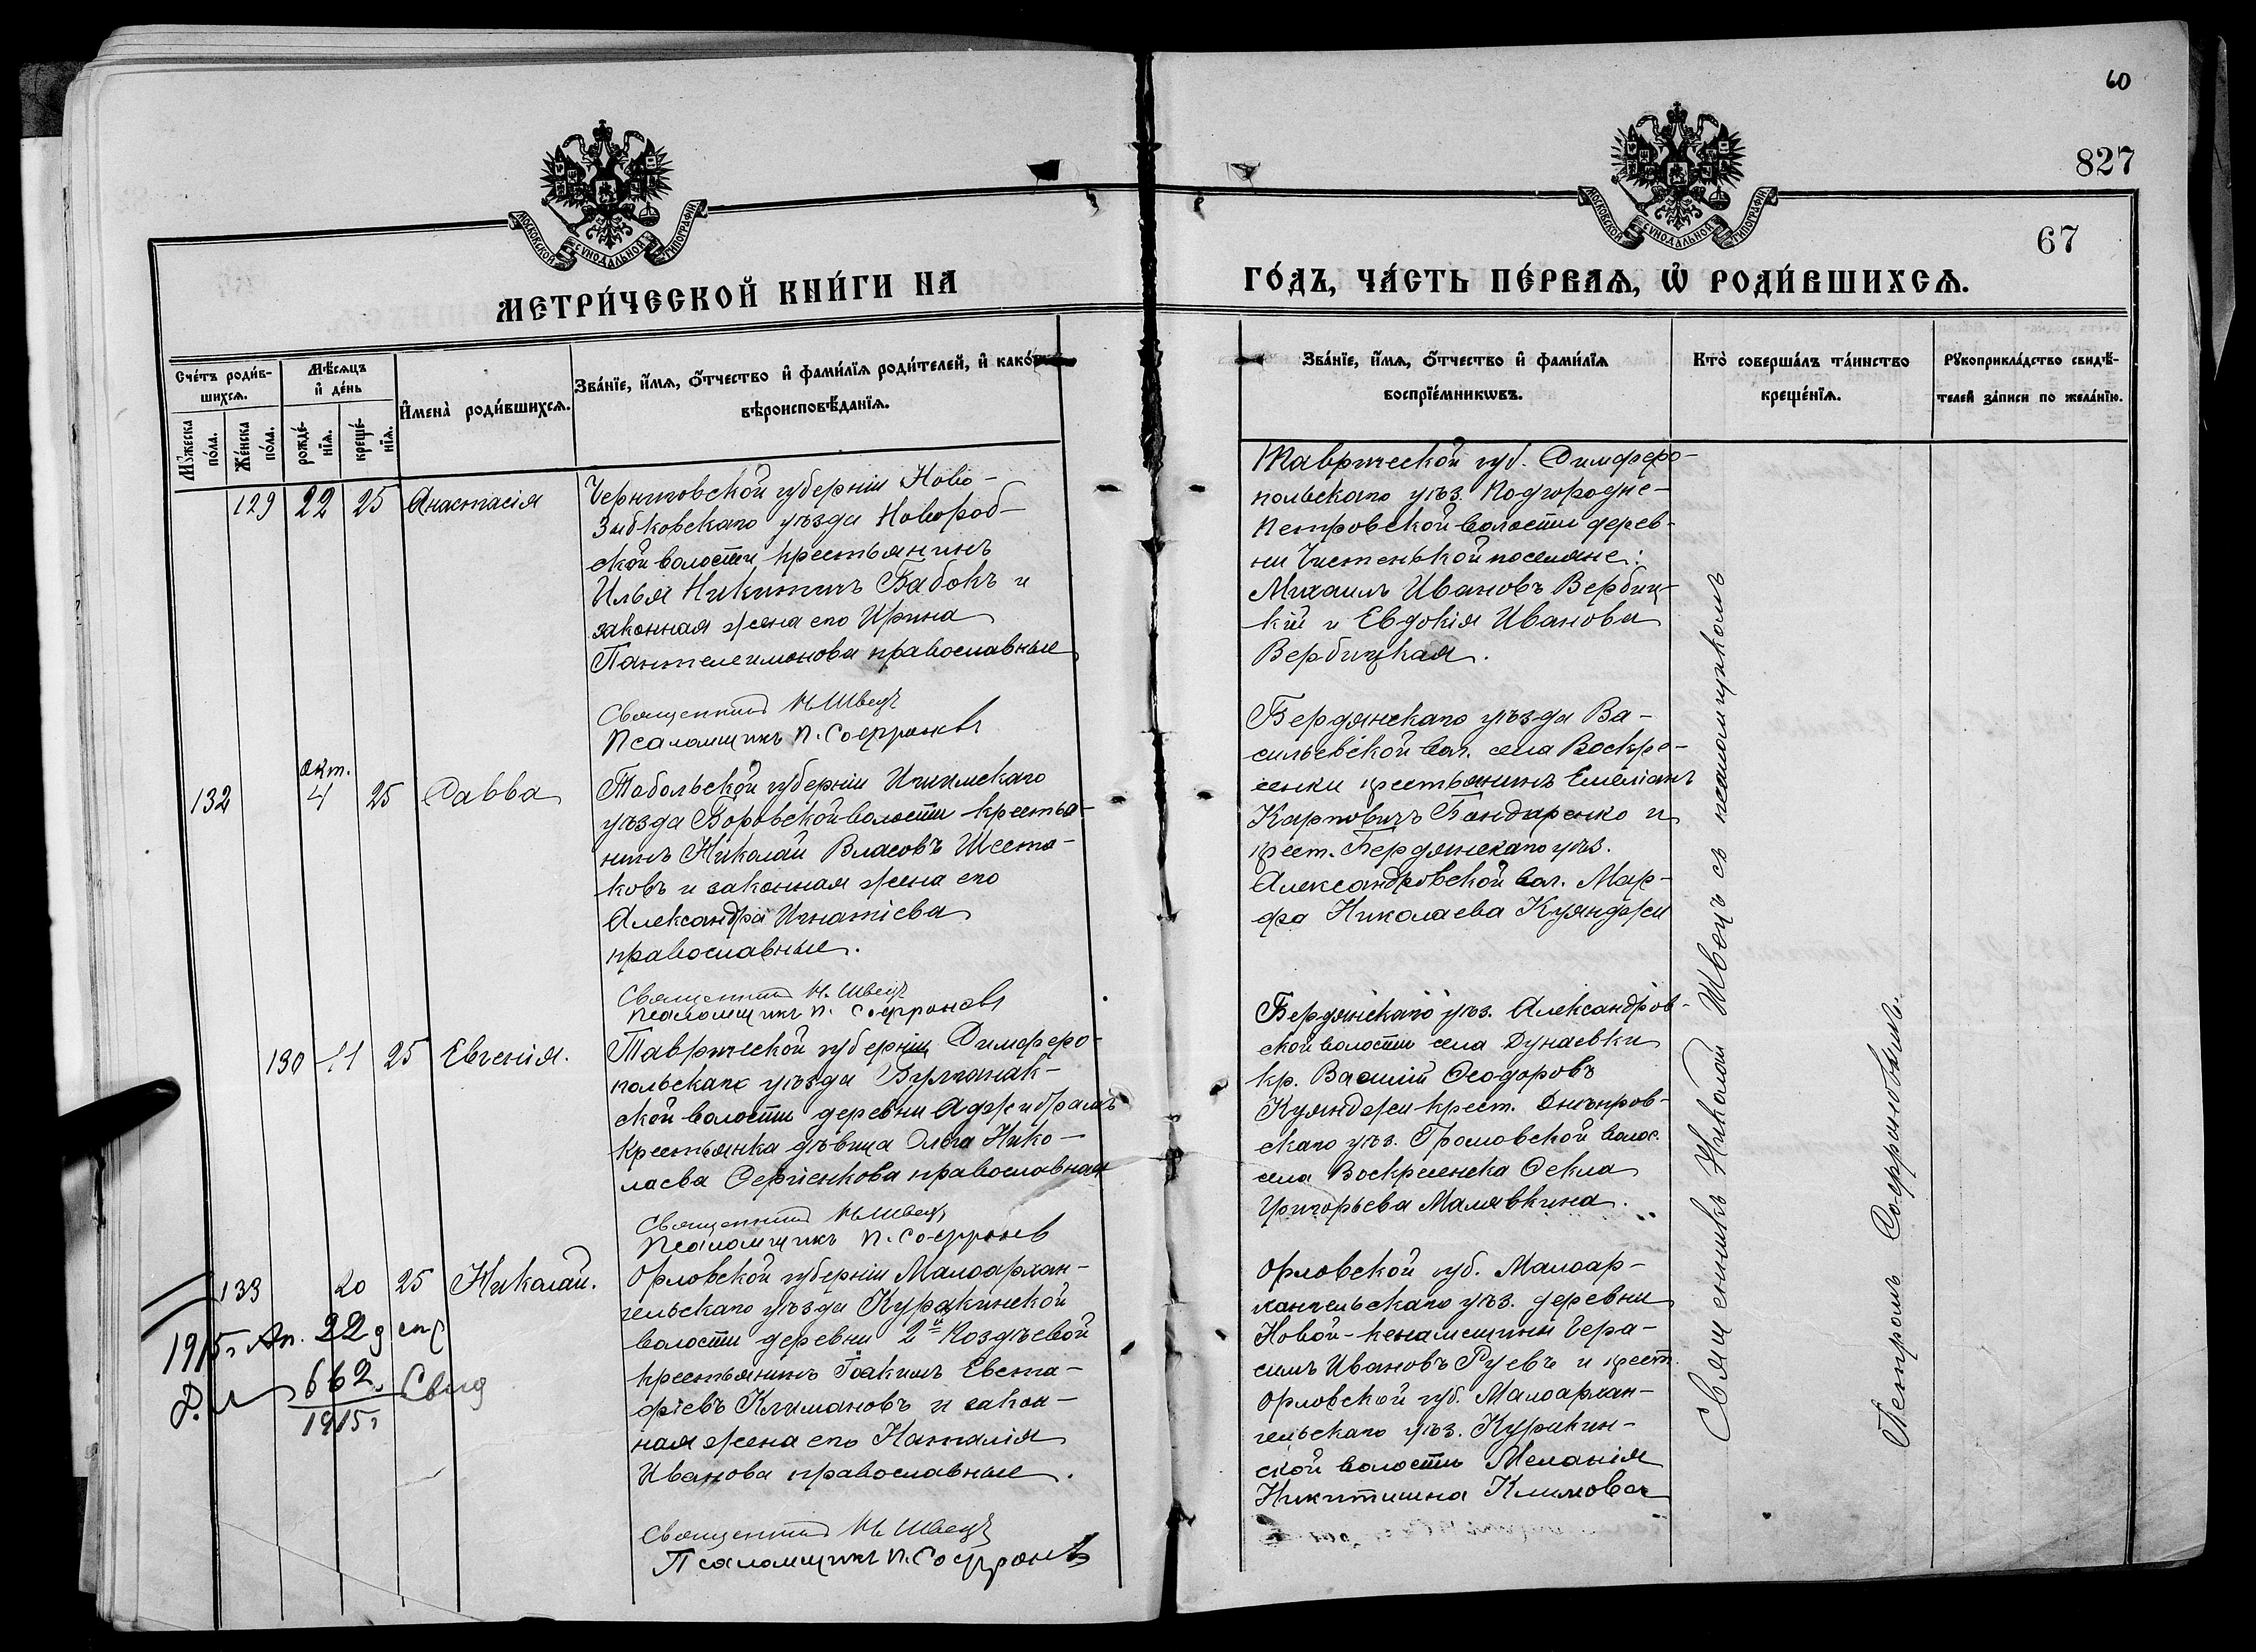 60
827
67
МОСКОВСКОЙ СѴНОДАЛЬНОЙ ТИПОГРАФІИ
МОСКОВСКОЙ СѴНОДАЛЬНОЙ ТИПОГРАФІИ
МЕТРИ́ЧЕСКОЙ КНИ́ГИ НА
ГО́ДЪ, ЧА́СТЬ ПЕ́РВАѦ, Ѡ҆ РОДИ́ВШИХСѦ.
Сче́тъ роди́в-
шихсѧ.
Мꙋ́жеска
по́ла.
Же́нска
по́ла.
Мѣ́сѧцъ
и҆ де́нь
рожде́-
нїѧ.
креще́-
нїѧ.
И҆мена̀ роди́вшихсѧ.
Зва́нїе, и҆́мѧ, ѻ҆́тчество и҆ фами́лїѧ роди́телей, и҆ како́гѡ
вѣроисповѣ́данїѧ.
Зва́нїе, и҆́мѧ, ѻ҆́тчество и҆ фами́лїѧ
воспрїе́мникѡвъ.
Кто̀ соверша́лъ та́инство
креще́нїѧ.
Рꙋкоприкла́дство свидѣ́-
телей за́писи по жела́нїю.
129 22 25 Анастасія
Черниговской губерніи Ново-
Зыбковскаго уѣзда Новороб-
ской волости крестьянинъ
Илья Никитичъ Бабокъ и
законная жена его Ирина
Пантелеимонова православные
Священникъ Н. Швецъ
Псаломщикъ П. Софроновъ
Таврической губ. Симферо-
польскаго уѣз. Подгородне-
Петровской волости дерев-
ни Чистенькой поселяне:
Михаилъ Ивановъ Вербиц-
кій и Евдокія Иванова
Вербицкая.
132 окт. 4 25 Савва
Тобольской губерніи Ишимскаго
уѣзда Боровской волости крестья-
нинъ Николай Власовъ Шеста-
ковъ и законная жена его
Александра Игнатіева
православные.
Священникъ Н. Швецъ
Псаломщикъ П. Софроновъ
Бердянскаго уѣзда Ва-
сильевской вол. села Воскре-
сенки крестьянинъ Емеліанъ
Карповичъ Бондаренко и
крест. Бердянскаго уѣз.
Александровской вол. Мар-
фа Николаева Куянджи
130 11 25 Евгенія.
Таврической губерніи Симферо-
польскаго уѣзда Булганак-
ской волости деревни Аджибрамъ
крестьянка дѣвица Ольга Нико-
лаева Сергіенкова православная
Священникъ Н. Швецъ
Псаломщикъ П. Софроновъ
Бердянскаго уѣз. Александров-
ской волости села Дунаевки
кр. Василій Ѳеодоровъ
Куянджи крест. Днѣпров-
скаго уѣз. Громовской волос.
села Воскресенска Ѳекла
Григорьева Малявкина.
133 20 25 Николай.
1915 г. Ап. 22 д
662
1915 г.
Свид
Орловской губерніи Малоархан-
гельскаго уѣзда Куракинской
волости деревни 2й Поздѣевой
крестьянинъ Іоакимъ Евста-
фіевъ Климановъ и закон-
ная жена его Наталія
Иванова православные.
Священникъ Н. Швецъ
Псаломщикъ П. Софроновъ
Орловской губ. Малоар-
хангельскаго уѣз. деревни
Новой- Гера-
симъ Ивановъ Руевъ и крест.
Орловской губ. Малоархан-
гельскаго уѣз. Куракин-
ской волости Меланія
Никитишна Климова
Священникъ Николай Швецъ съ псаломщикомъ
Петромъ Софроновымъ.